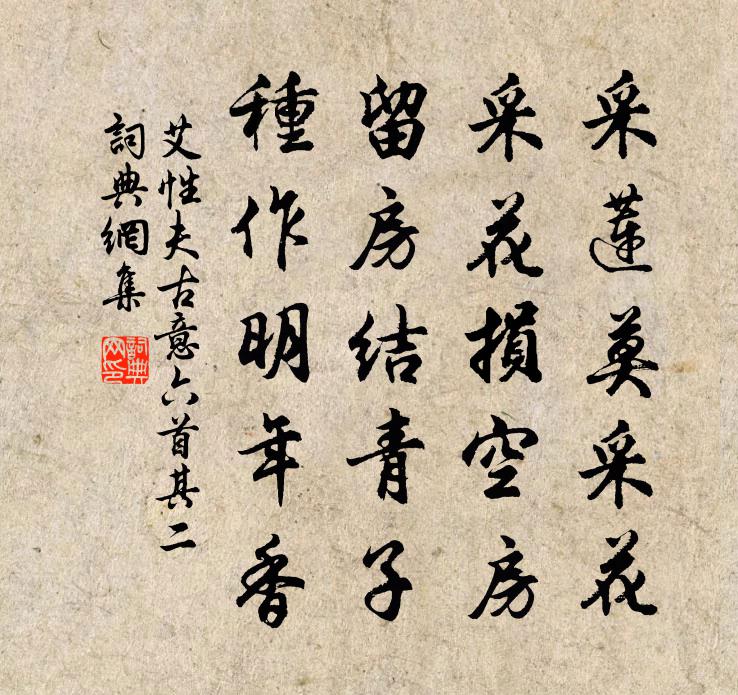 采蓮莫采花
采花損空房
留房結青子
種作明年香
艾性夫古意六首其二
詞典網集
詞典網印